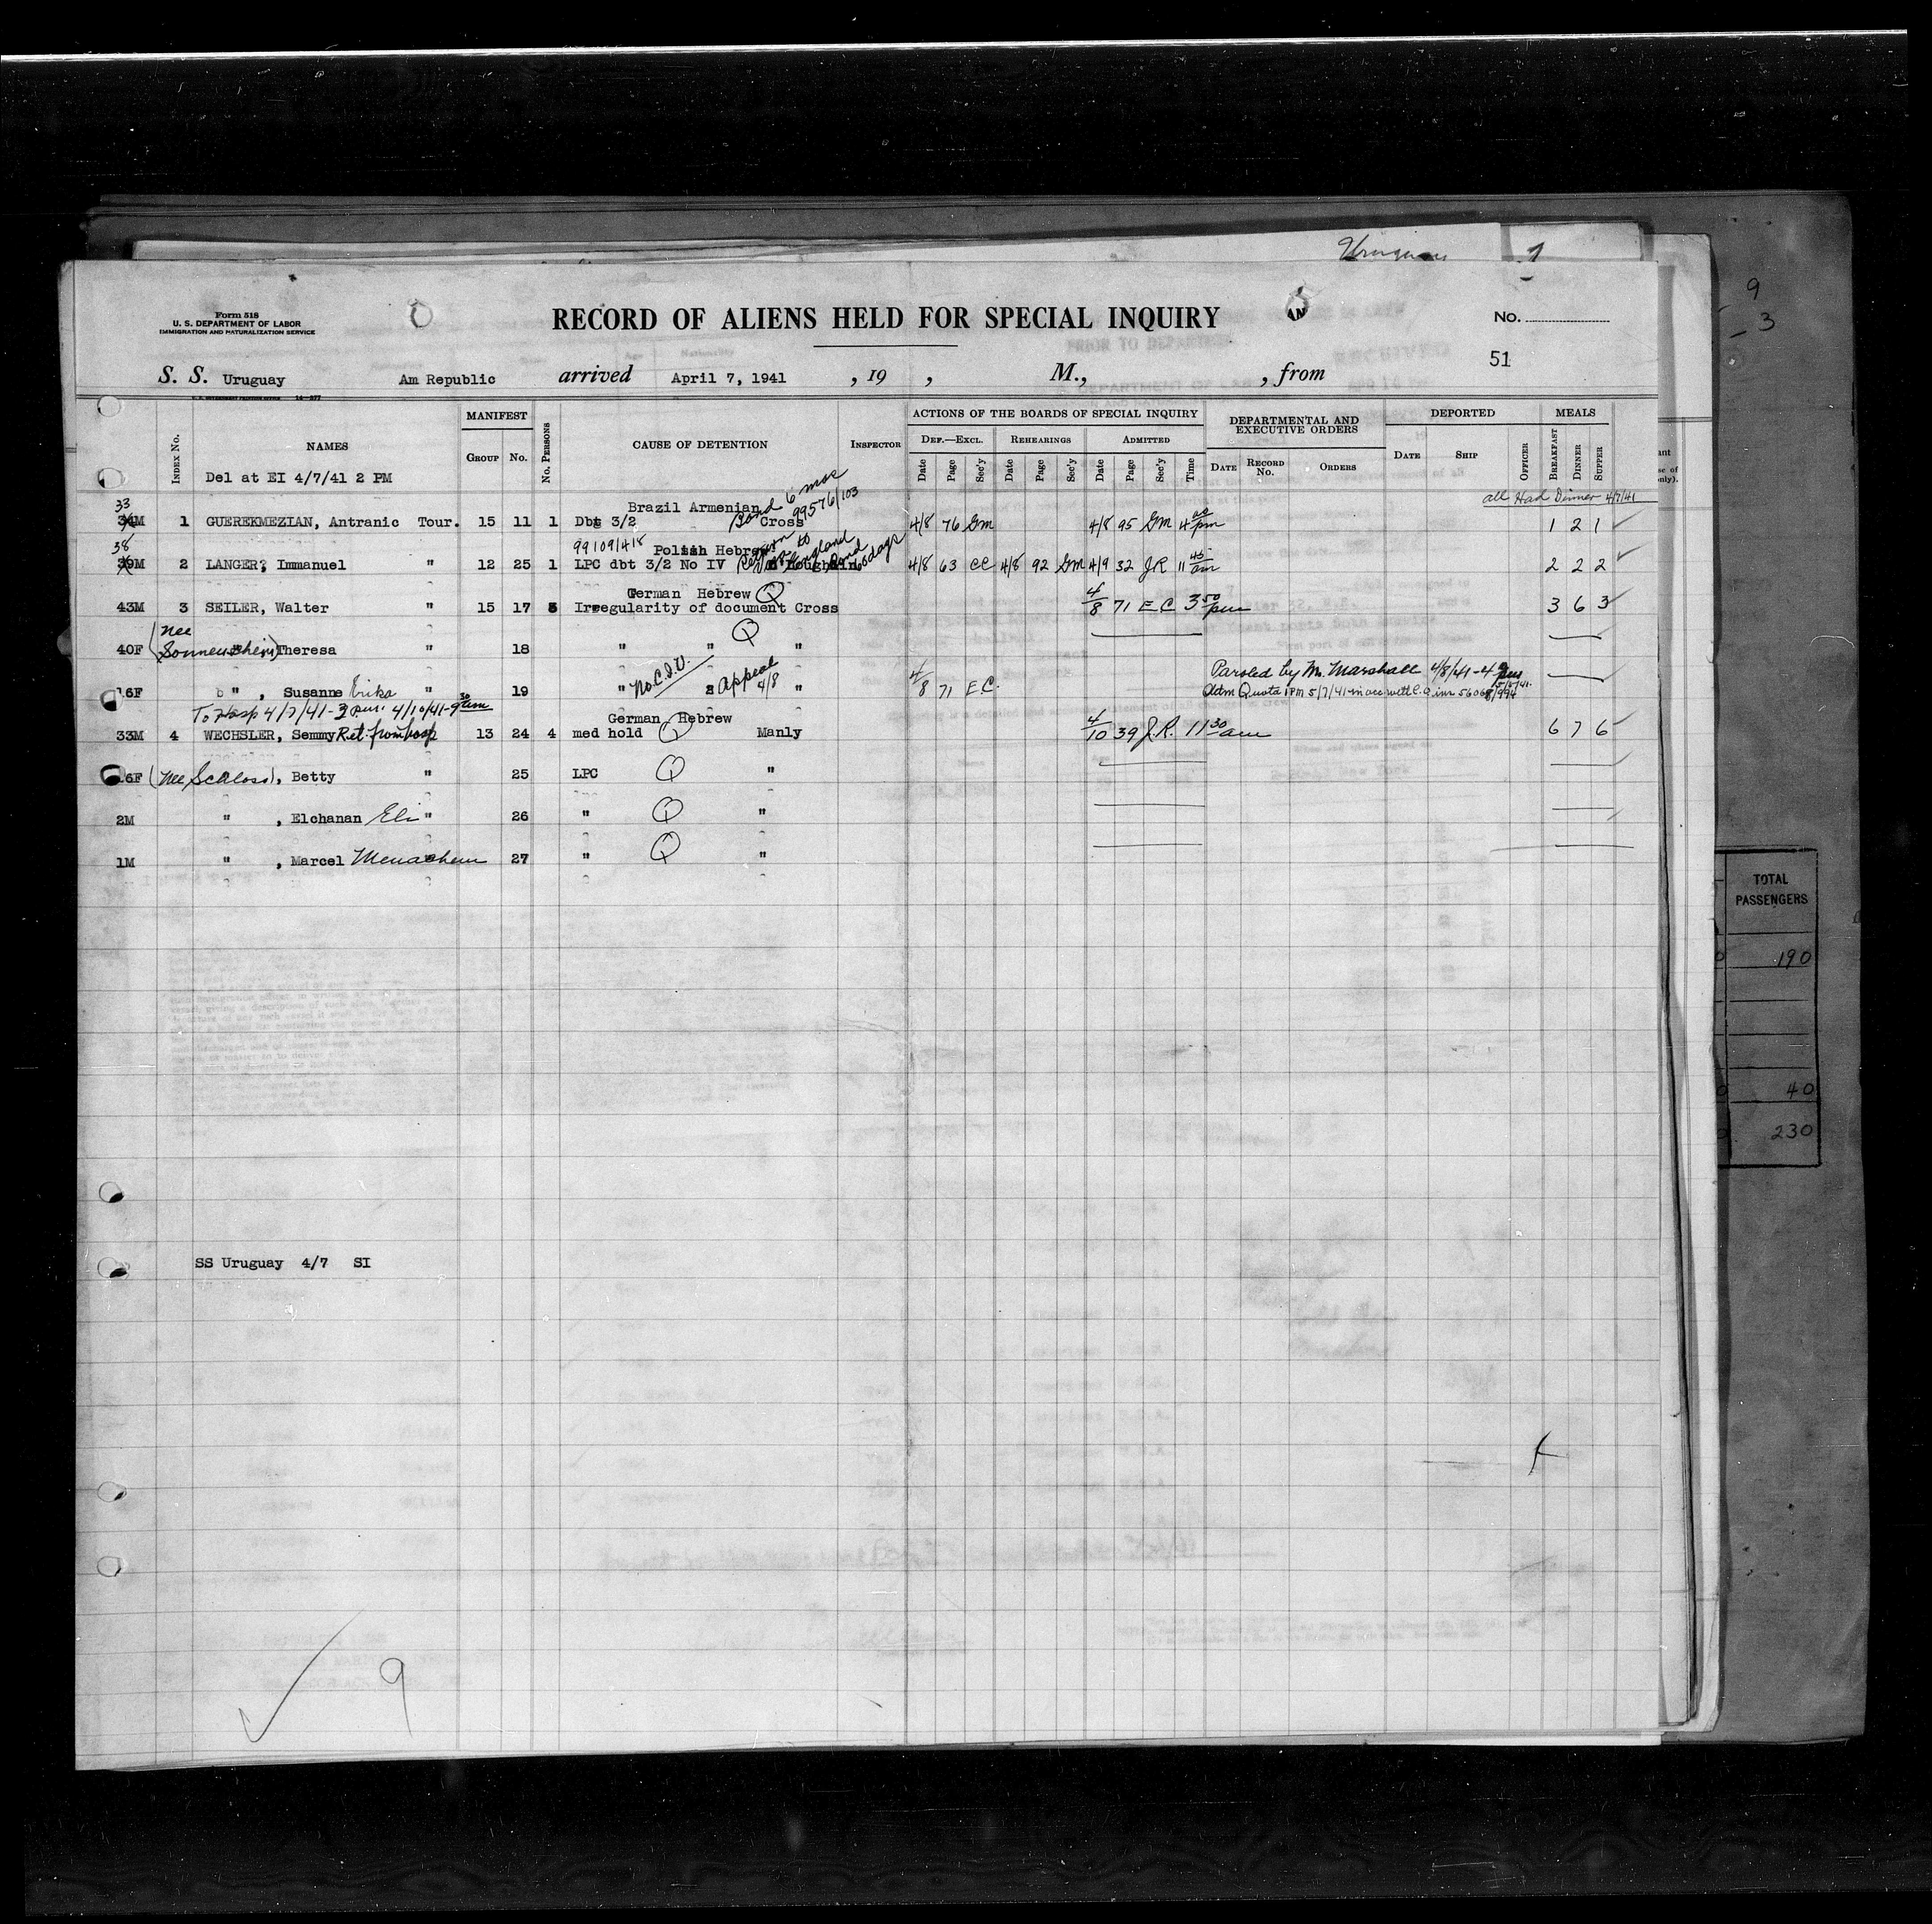 Uruguay 1
9
3
Form 518
U. S. DEPARTMENT OF LABOR
IMMIGRATION AND NATURALIZATION SERVICE
RECORD OF ALIENS HELD FOR SPECIAL INQUIRY
No.
51
S. S. Uruguay Am Republic arrived April 7, 1941 , 19 , M., , from
INDEX No. NAMES MANIFEST GROUP No. No. PERSONS CAUSE OF DETENTION INSPECTOR ACTIONS OF THE BOARDS OF SPECIAL INQUIRY DEPARTMENTAL AND EXECUTIVE ORDERS DEPORTED MEALS
DEF.—EXCL. REHEARINGS ADMITTED
Date Page Sec'y Date Page Sec'y Date Page Sec'y Time DATE RECORD No. ORDERS DATE SHIP OFFICER BREAKFAST DINNER SUPPER
Del at EI 4/7/41 2 PM
all Had Dinner 4/7/41
33 Brazil Armenian Bond 6 mos 99576/103
34M 1 GUEREKMEZIAN, Antranic Tour. 15 11 1 Dbt 3/2 Cross 4/8 76 GM 4/8 95 GM 4 00 pm 1 2 1
38 99109/418 Polish Hebrew
39M 2 LANGER, Immanuel " 12 25 1 LPC dbt 3/2 No IV Bond 60 days 4/8 63 CC 4/8 92 GM 4/9 32 JR 11 45 am 2 2 2
German Hebrew Q
43M 3 SEILER, Walter " 15 17 Irregularity of document Cross 4/8 71 EC 3 50 pm 3 6 3
(nee
40F Sonnenshein) Theresa " 18 " " Q "
16F " , Susanne Erika " 19 " No C.I.V. Appeal 4/8 " 4/8 71 EC. Paroled by M. Marshall 4/8/41-4 pm
Adm Quota 1 PM 5/7/41 in acc with C.O.
To Hosp 4/7/41-3 pm. 4/10/41-9 30 am
German Hebrew
33M 4 WECHSLER, Semmy Ret. from hosp 13 24 4 med hold Q Manly 4/10 39 J.R. 11 30 am 6 7 6
6F (nee Schloss), Betty " 25 LPC Q "
2M " , Elchanan Eli " 26 " Q "
1M " , Marcel Menachem 27 " Q "
TOTAL PASSENGERS
190
40
230
SS Uruguay 4/7 SI
9